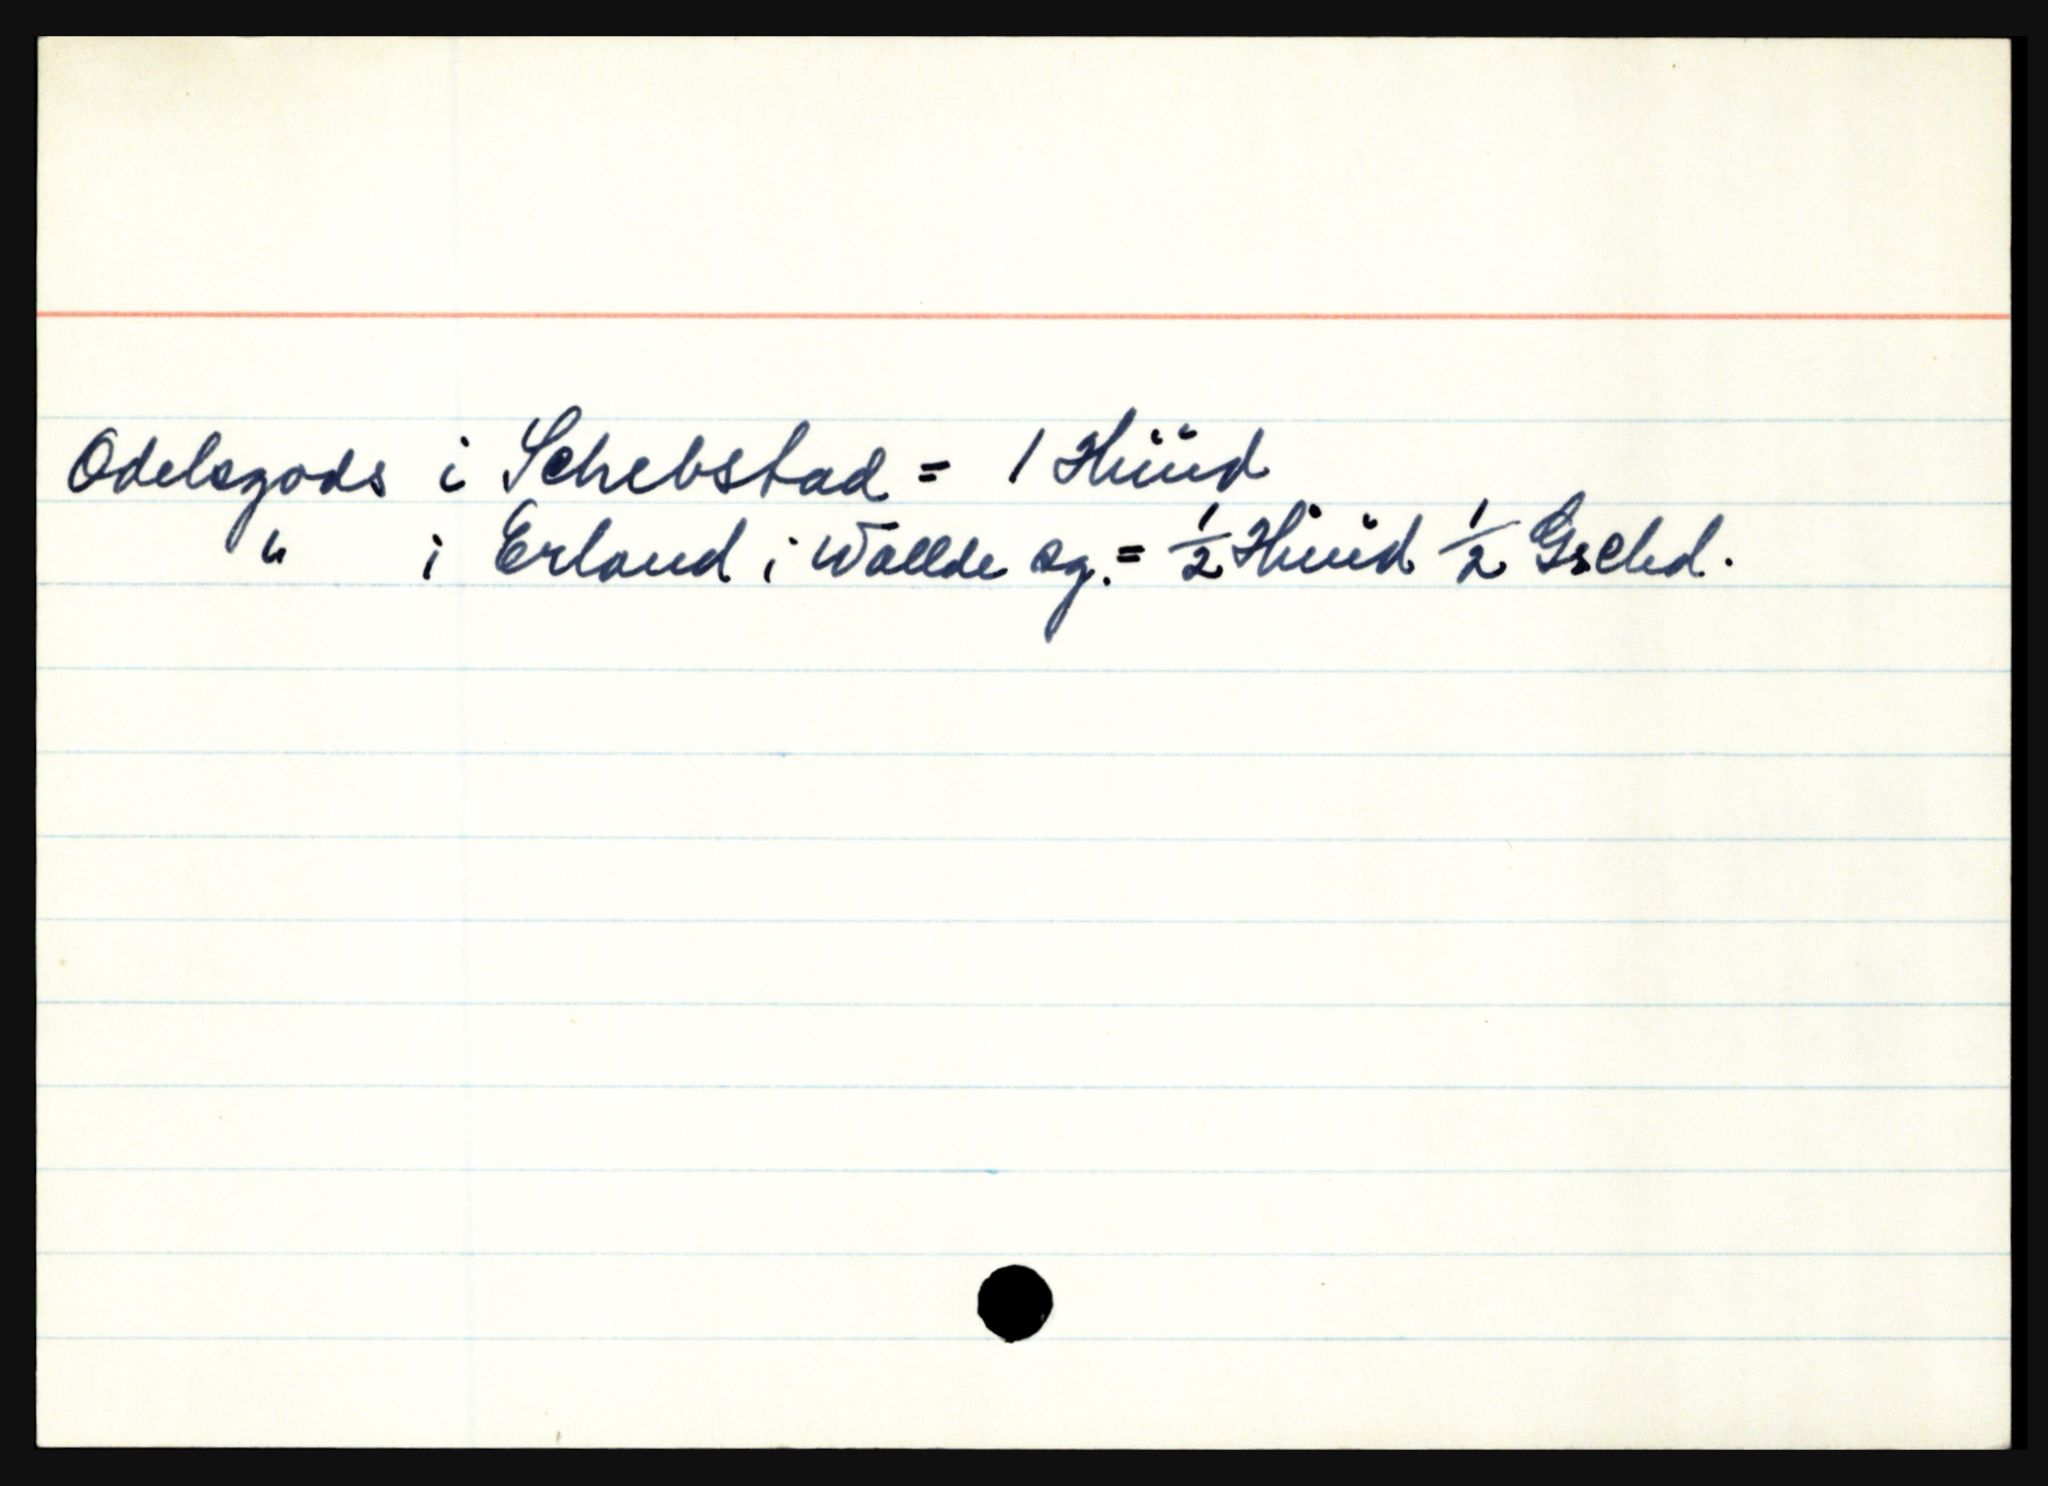 Odelsgods i Schebstad = 1 Hüüd
" i Erland i Wallde sg. = ½ Hüüd ½ Gschd.